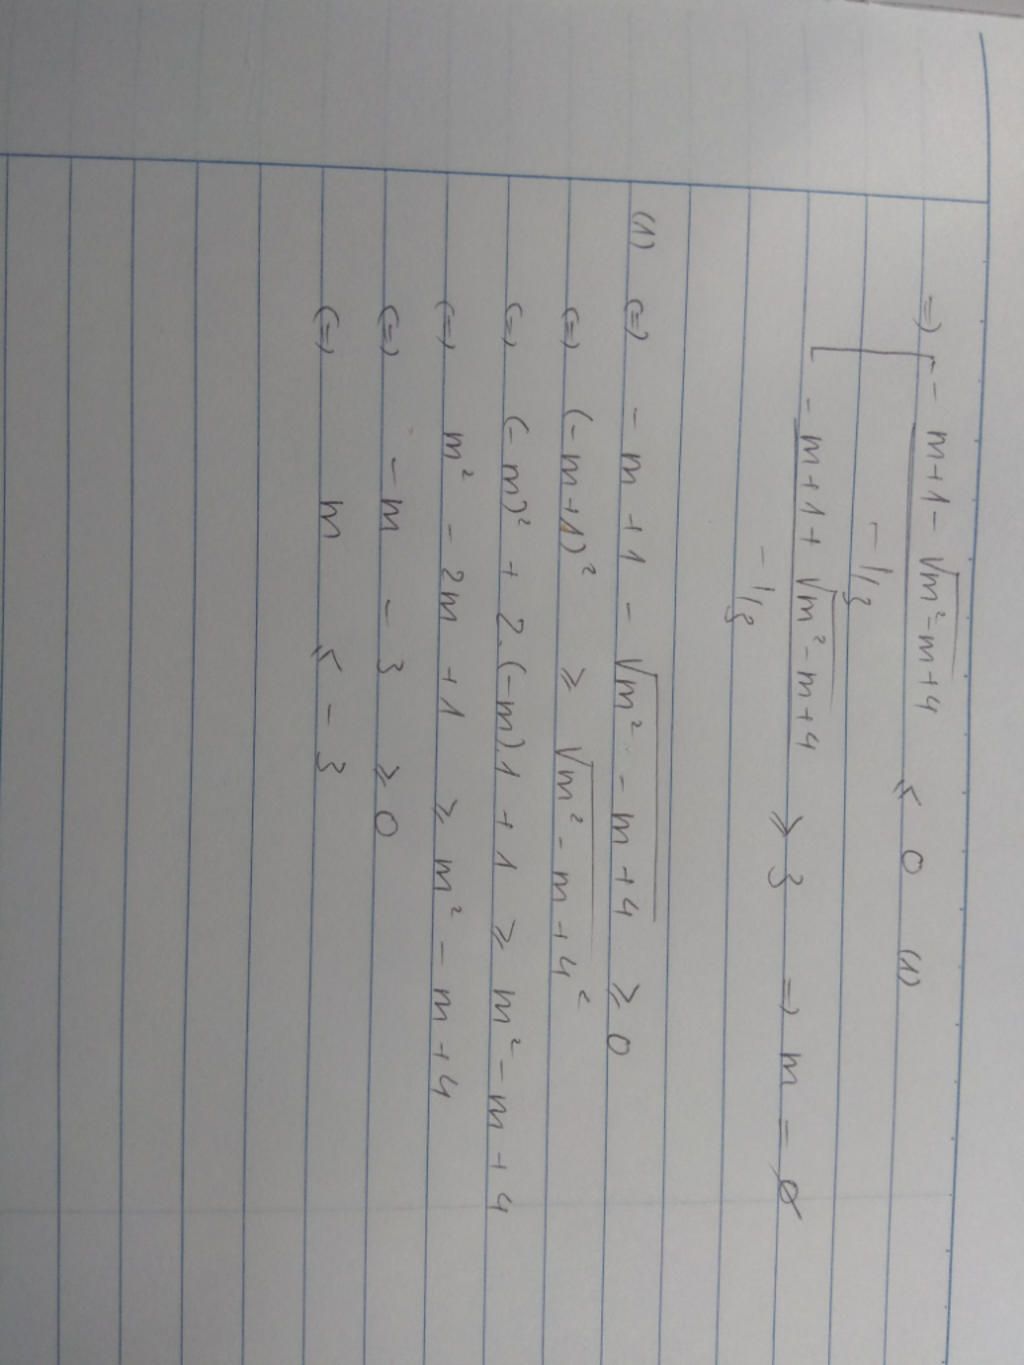 =) [ - m+1 - √m²-m+4 / -1/3 ≤ 0 (1)
- m+1+ √m²-m+4 / -1/3 ≥ 3 => m = ø
(1) (=) - m + 1 - √m² - m + 4 ≥ 0
(=) (-m+1)² ≥ √m² - m + 4²
(=) (-m)² + 2.(-m).1 + 1 ≥ m² - m + 4
(=) m² - 2m + 1 ≥ m² - m + 4
(=) -m - 3 ≥ 0
(=) m ≤ -3